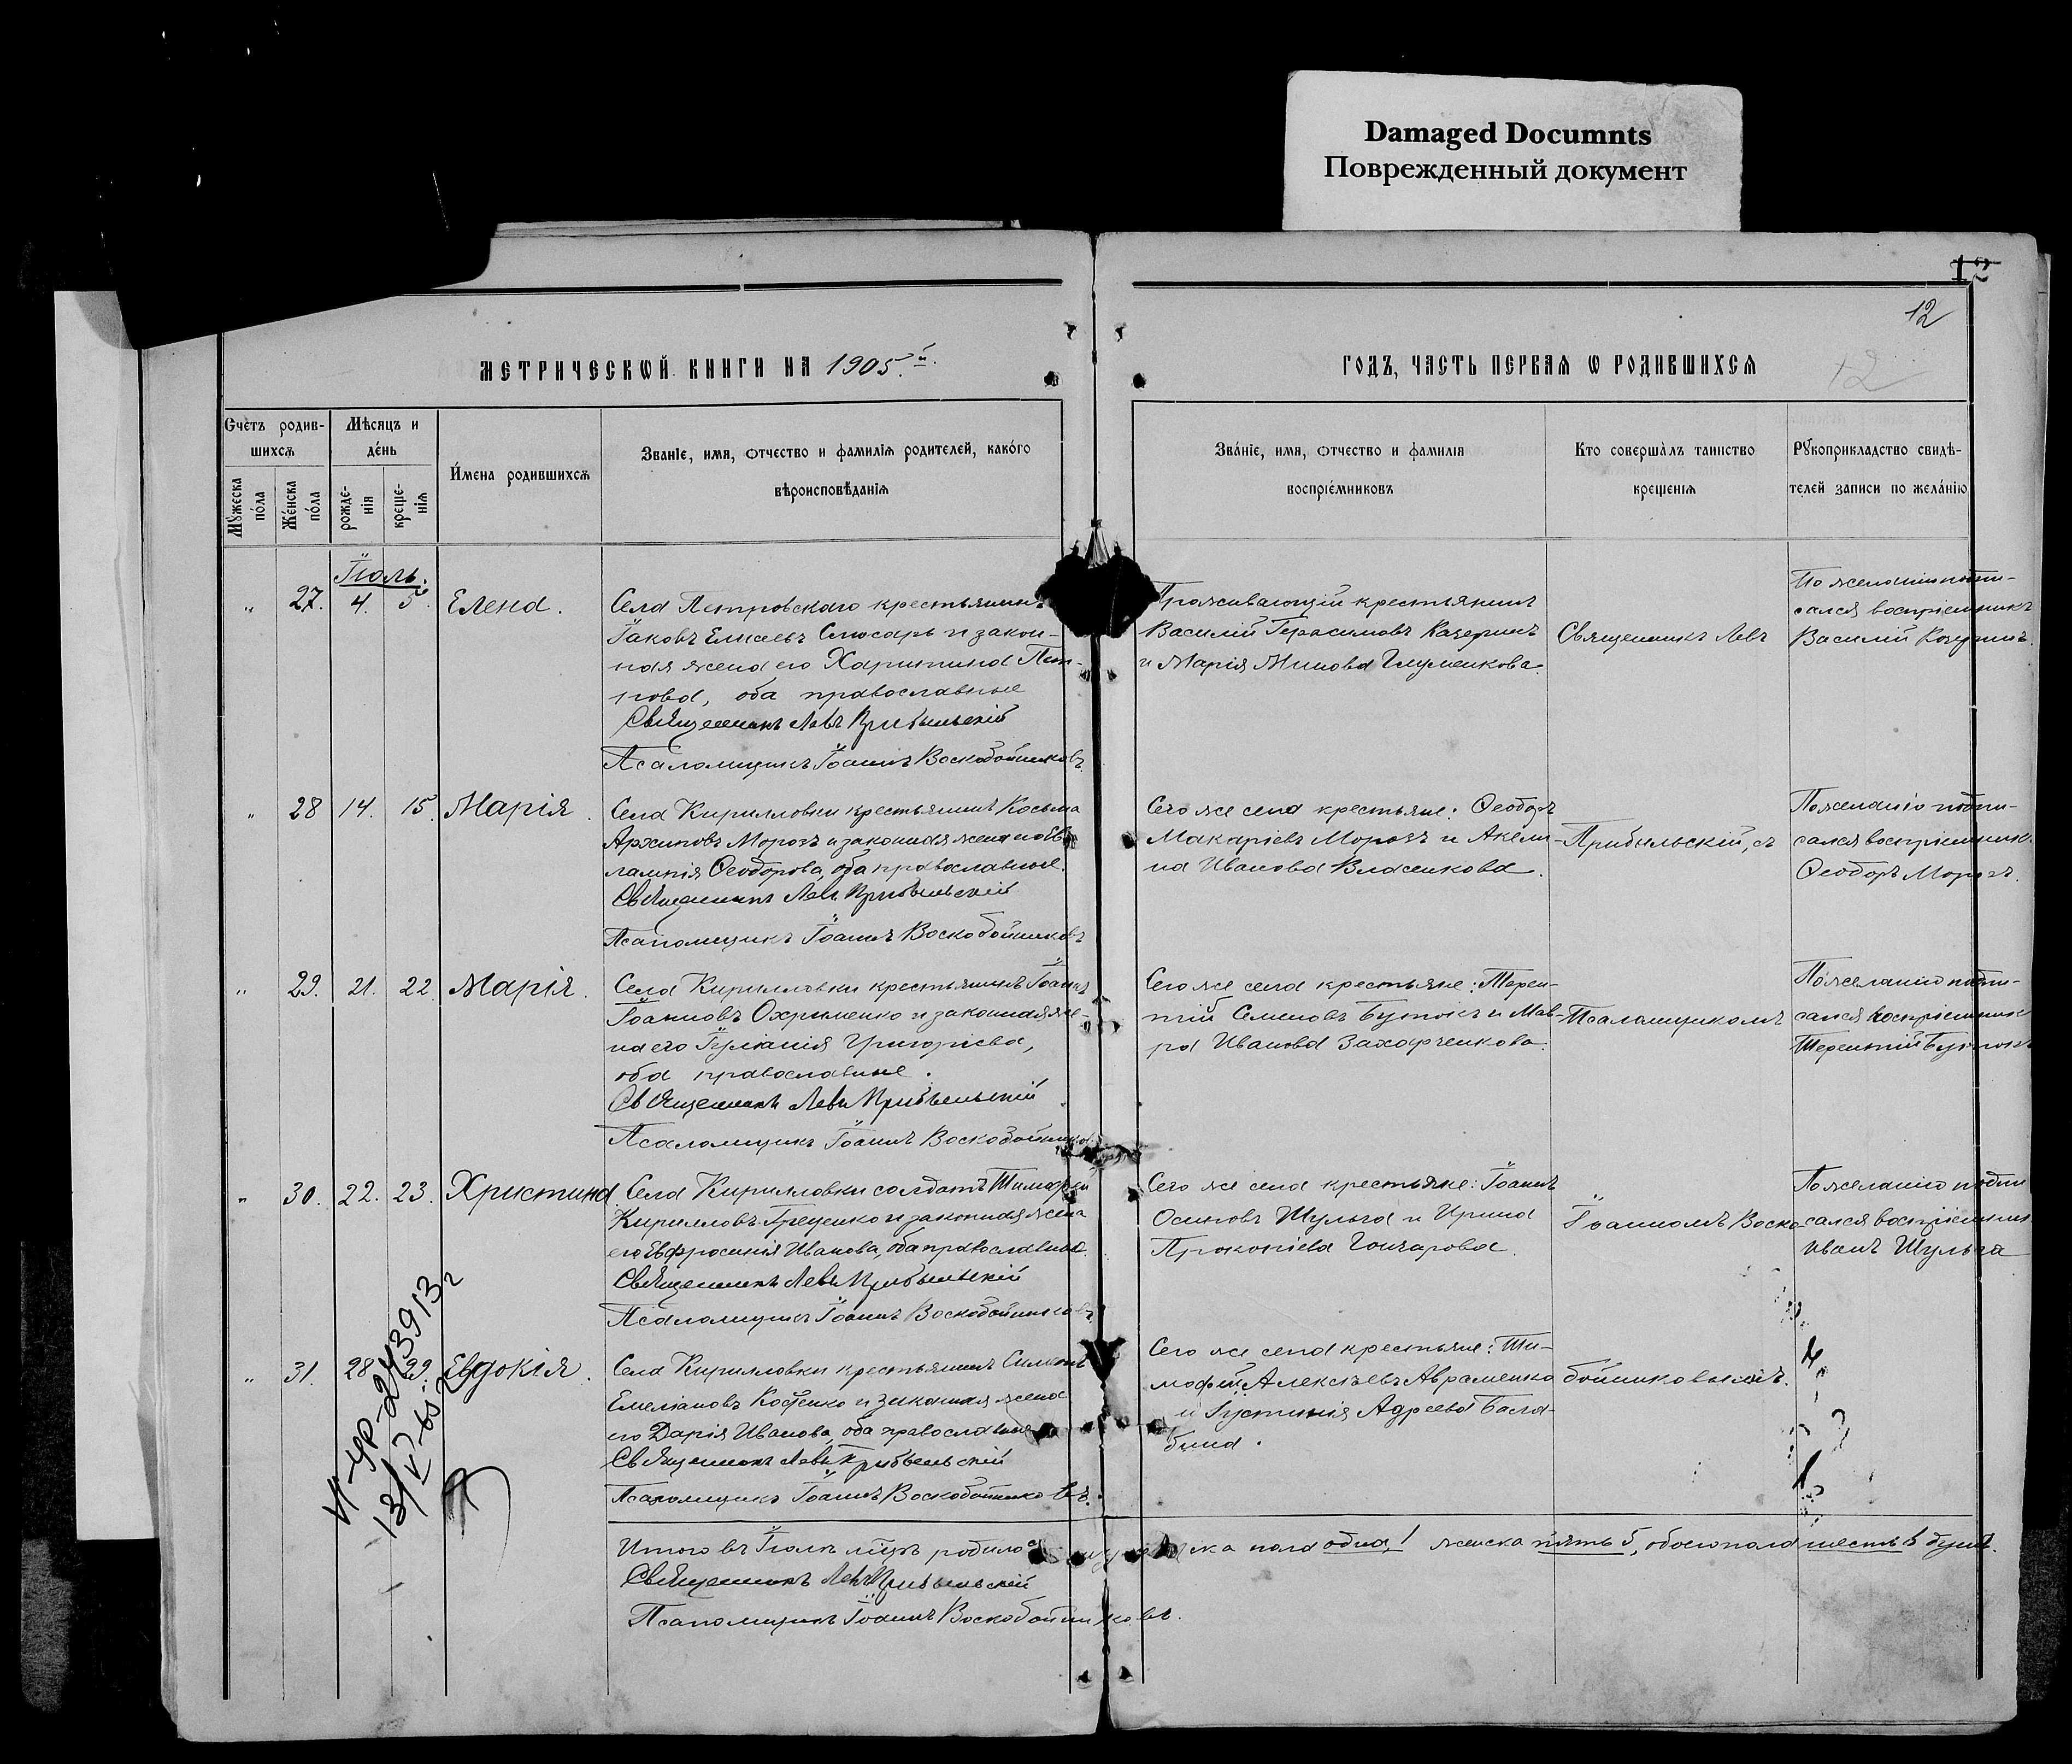 Damaged Documnts
Поврежденный документ
12
12
12
МЕТРИЧЕСКѠЙ КНИГИ НА 1905.й
ГОДЪ, ЧАСТЬ ПЕРВАѦ Ѡ РОДИВШИХСѦ
Счетъ родив-
шихсѧ
Мꙋжеска пола
Женска пола
Мѣсяцъ и
день
рожде-
нїѧ
креще-
нїѧ
Имена родившихсѧ
Званїе, имя, ѻтчество и фамилїѧ родителей, какого
вѣроисповѣданїѧ
Званїе, имя, ѻтчество и фамилїѧ
воспрїемниковъ
Кто совершалъ таинство
крещенїѧ
Рꙋкоприкладство свидѣ-
телей записи по желанїю
Іюль.
" 27. 4. 5. Елена.
Села Петровскаго крестьянинъ
Іаковъ Елисеевъ Слюсарь и закон-
ная жена его Харитина Пет-
рова, оба православные
Священникъ Левъ Прибыльскій
Псаломщикъ Іоаннъ Воскобойниковъ.
Проживающій крестьянинъ
Василій Герасимовъ
и Марія Минова
Священникъ Левъ
По желанію подпи-
сался воспріемникъ
Василій
" 28 14. 15. Марія.
Села Кирилловки крестьянинъ Косьма
Архиповъ Морозъ и законная жена его Ев
лампія Ѳеодорова, оба православные.
Священникъ Левъ Прибыльскій
Псаломщикъ Іоаннъ Воскобойниковъ
Сего же села крестьяне: Ѳеодоръ
Макаріевъ Морозъ и Акели-
на Иванова Власенкова.
Прибыльскій, съ
По желанію подпи-
сался воспріемник.
Ѳеодоръ Морозъ.
" 29. 21. 22. Марія.
Села Кирилловки крестьянинъ Іоаннъ
Іоанновъ Охрименко и законная же-
на его Іуліанія Григоріева,
оба православные.
Священникъ Левъ Прибыльскій
Псаломщикъ Іоаннъ Воскобойников
Сего же села крестьяне: Терен-
тій Семеновъ Бутокъ и Мав-
ра Иванова Захарченкова.
Псаломщикомъ
По желанію подпи-
сался воспріемник
Терентій Бутокъ
" 30. 22. 23. Христина
Села Кирилловки солдатъ Тимофей
Кирилловъ Греценко и законная жена
его Евфросинія Иванова, оба православные.
Священникъ Левъ Прибыльскій
Псаломщикъ Іоаннъ Воскобойниковъ
Сего же села крестьяне: Іоаннъ
Осиповъ Шульга и Ирина
Прокопіева Гончарова.
Іоанномъ Воско-
По желанію подпи
сался воспріемник.
Иванъ Шульга
" 31. 28 29. Евдокія.
Села Кирилловки крестьянинъ Симеонъ
Емеліановъ Костенко и законная жена
его Дарія Иванова, оба православные
Священникъ Левъ Прибыльскій
Псаломщикъ Іоаннъ Воскобойниковъ.
Сего же села крестьяне: Ти-
мофей Алексѣевъ Авраменко
и Іустинія Адреева Бала-
бина.
бойниковымъ.
Итого въ Іюлѣ мцѣ родилос му ска пола одна, 1 женска пять 5, обоего пола шесть 6 душъ.
Священникъ Левъ Прибыльскій
Псаломщикъ Іоаннъ Воскобойниковъ.